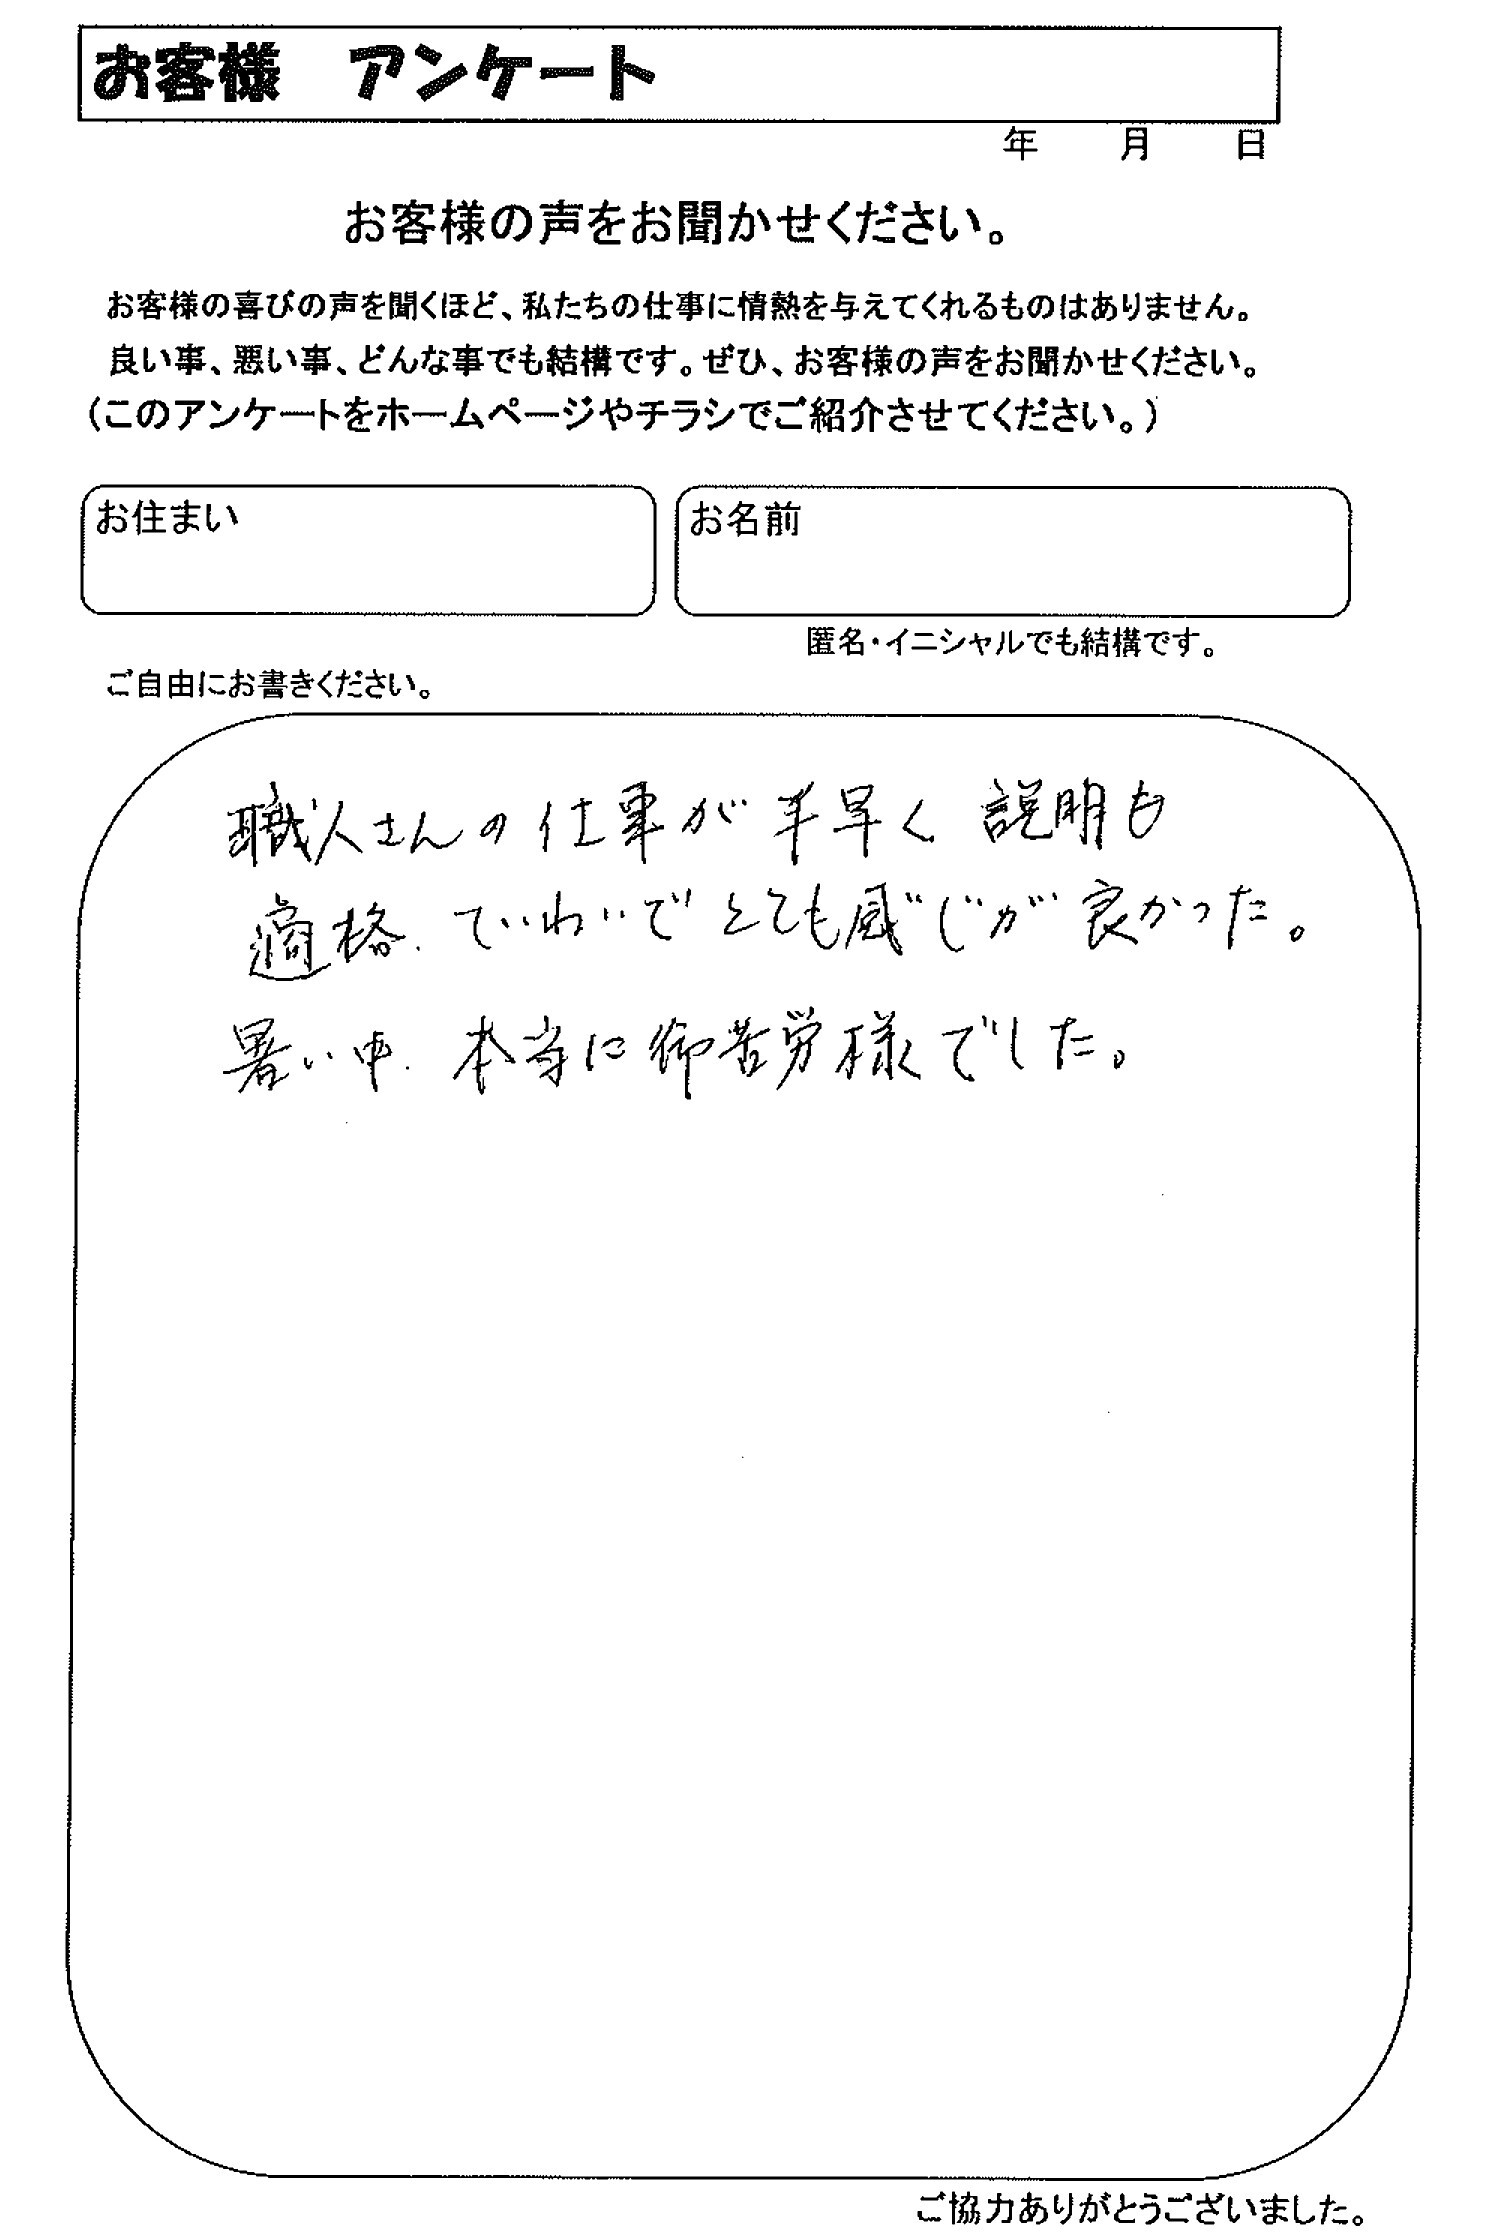 お客様　アンケート
年　月　日
お客様の声をお聞かせください。
お客様の喜びの声を聞くほど、私たちの仕事に情熱を与えてくれるものはありません。
良い事、悪い事、どんな事でも結構です。ぜひ、お客様の声をお聞かせください。
（このアンケートをホームページやチラシでご紹介させてください。）
お住まい　お名前
匿名・イニシャルでも結構です。
ご自由にお書きください。
職人さんの仕事が手早く、説明も
適格、ていねいでとても感じが良かった。
暑い中、本当に御苦労様でした。
ご協力ありがとうございました。